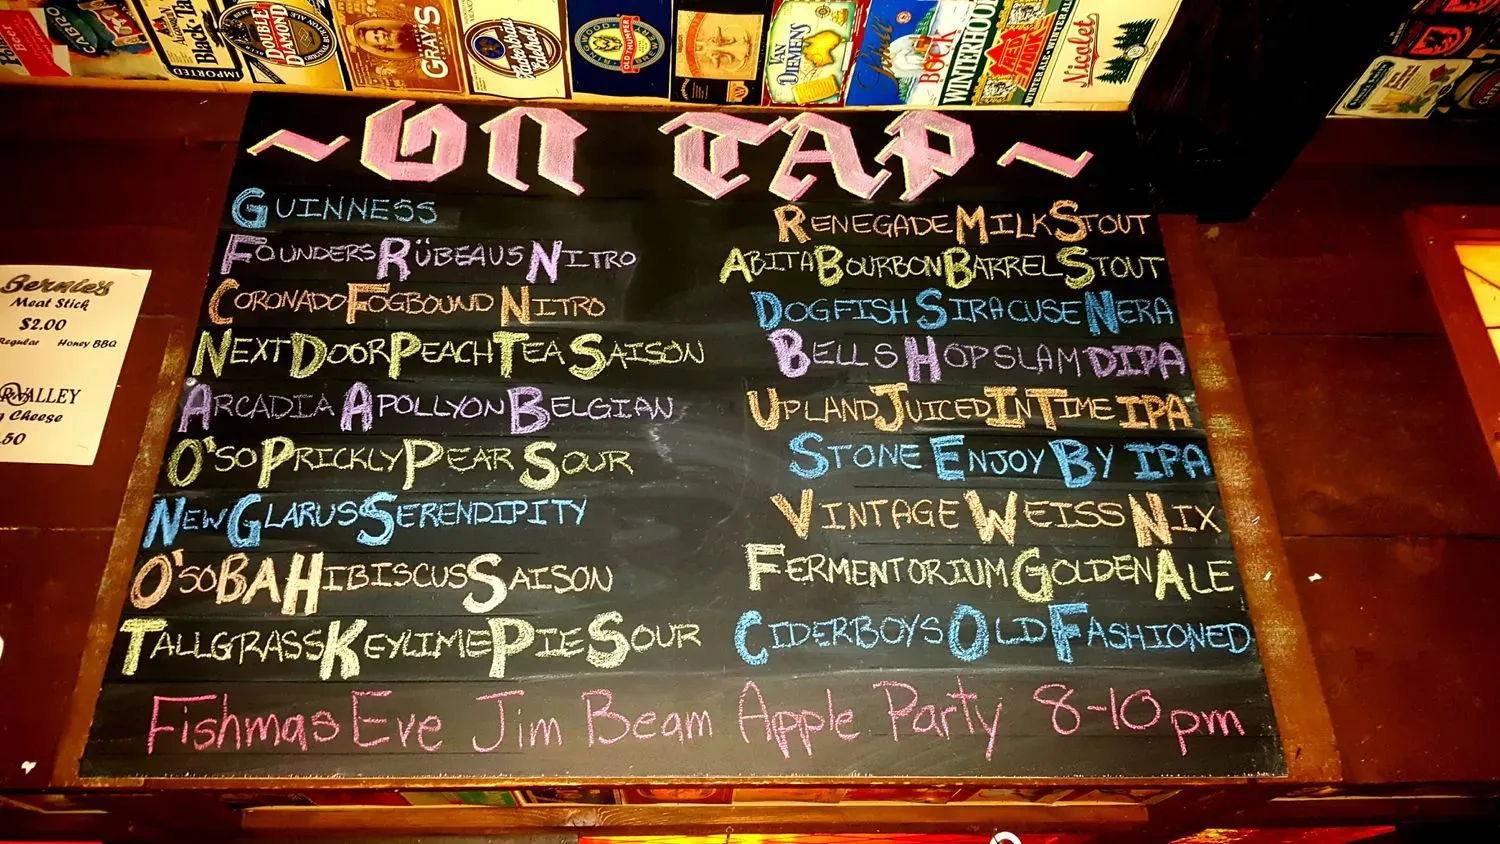 DOUBLE DIAMOND
GRAY'S
OLD THUMPER
VAN DIEMENS
BOCK
WINTERHOOK
Nicolet
~ON TAP~
GUINNESS
FOUNDERS RÜBEAUS NITRO
CORONADO FOGBOUND NITRO
NEXT DOOR PEACH TEA SAISON
ARCADIA APOLLYON BELGIAN
O'SO PRICKLY PEAR SOUR
NEW GLARUS SERENDIPITY
O'SO BAHIBISCUS SAISON
TALLGRASS KEYLIME PIE SOUR
RENEGADE MILK STOUT
ABITA BOURBON BARREL STOUT
DOGFISH SIRACUSE NERA
BELLS HOPSLAM DIPA
UPLAND JUICED IN TIME IPA
STONE ENJOY BY IPA
VINTAGE WEISS NIX
FERMENTORIUM GOLDEN ALE
CIDERBOYS OLD FASHIONED
Fishmas Eve Jim Beam Apple Party 8-10pm
Bernie's
Meat Stick
$2.00
Regular Honey BBQ
VALLEY
Cheese
.50